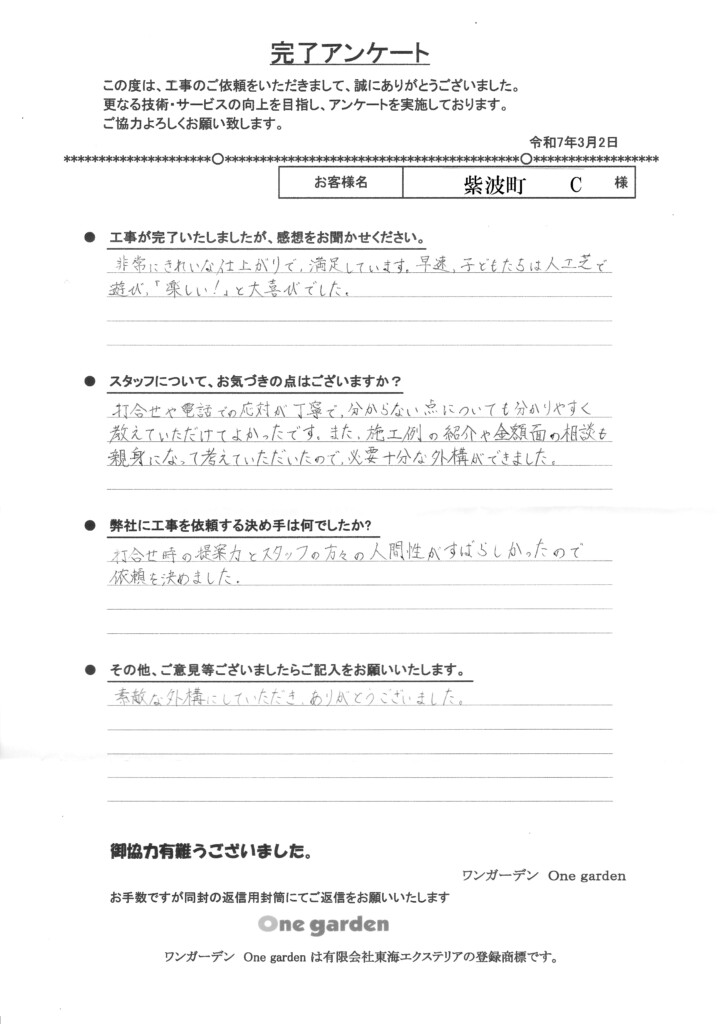 完了アンケート
この度は、工事のご依頼をいただきまして、誠にありがとうございました。
更なる技術・サービスの向上を目指し、アンケートを実施しております。
ご協力よろしくお願い致します。
令和7年3月2日
お客様名 紫波町 C 様
● 工事が完了いたしましたが、感想をお聞かせください。
非常にきれいな仕上がりで、満足しています。早速、子どもたちは人工芝で
遊び、「楽しい!」と大喜びでした。
● スタッフについて、お気づきの点はございますか?
打合せや電話での応対が丁寧で、分からない点についても分かりやすく
教えていただけてよかったです。また、施工例の紹介や金額面の相談も
親身になって考えていただいたので、必要十分な外構ができました。
● 弊社に工事を依頼する決め手は何でしたか?
打合せ時の提案力とスタッフの方々の人間性がすばらしかったので
依頼を決めました。
● その他、ご意見等ございましたらご記入をお願いいたします。
素敵な外構にしていただき、ありがとうございました。
御協力有難うございました。
ワンガーデン One garden
お手数ですが同封の返信用封筒にてご返信をお願いいたします
One garden
ワンガーデン One garden は有限会社東海エクステリアの登録商標です。